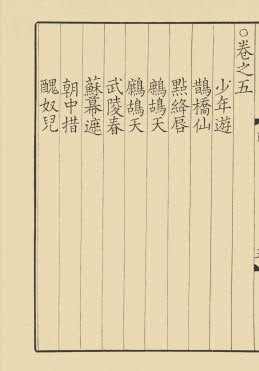 ○卷之五
少年遊
鵲橋仙
點絳唇
鷓鴣天
鷓鴣天
武陵春
蘇幕遮
朝中措
醜奴兒